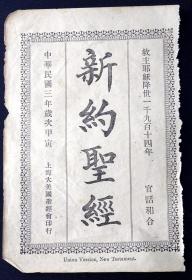 救主耶穌降世一千九百十四年
官話和合
新約聖經
中華民國三年歲次甲寅
上海大美國聖經會印行
Union Version, New Testament.